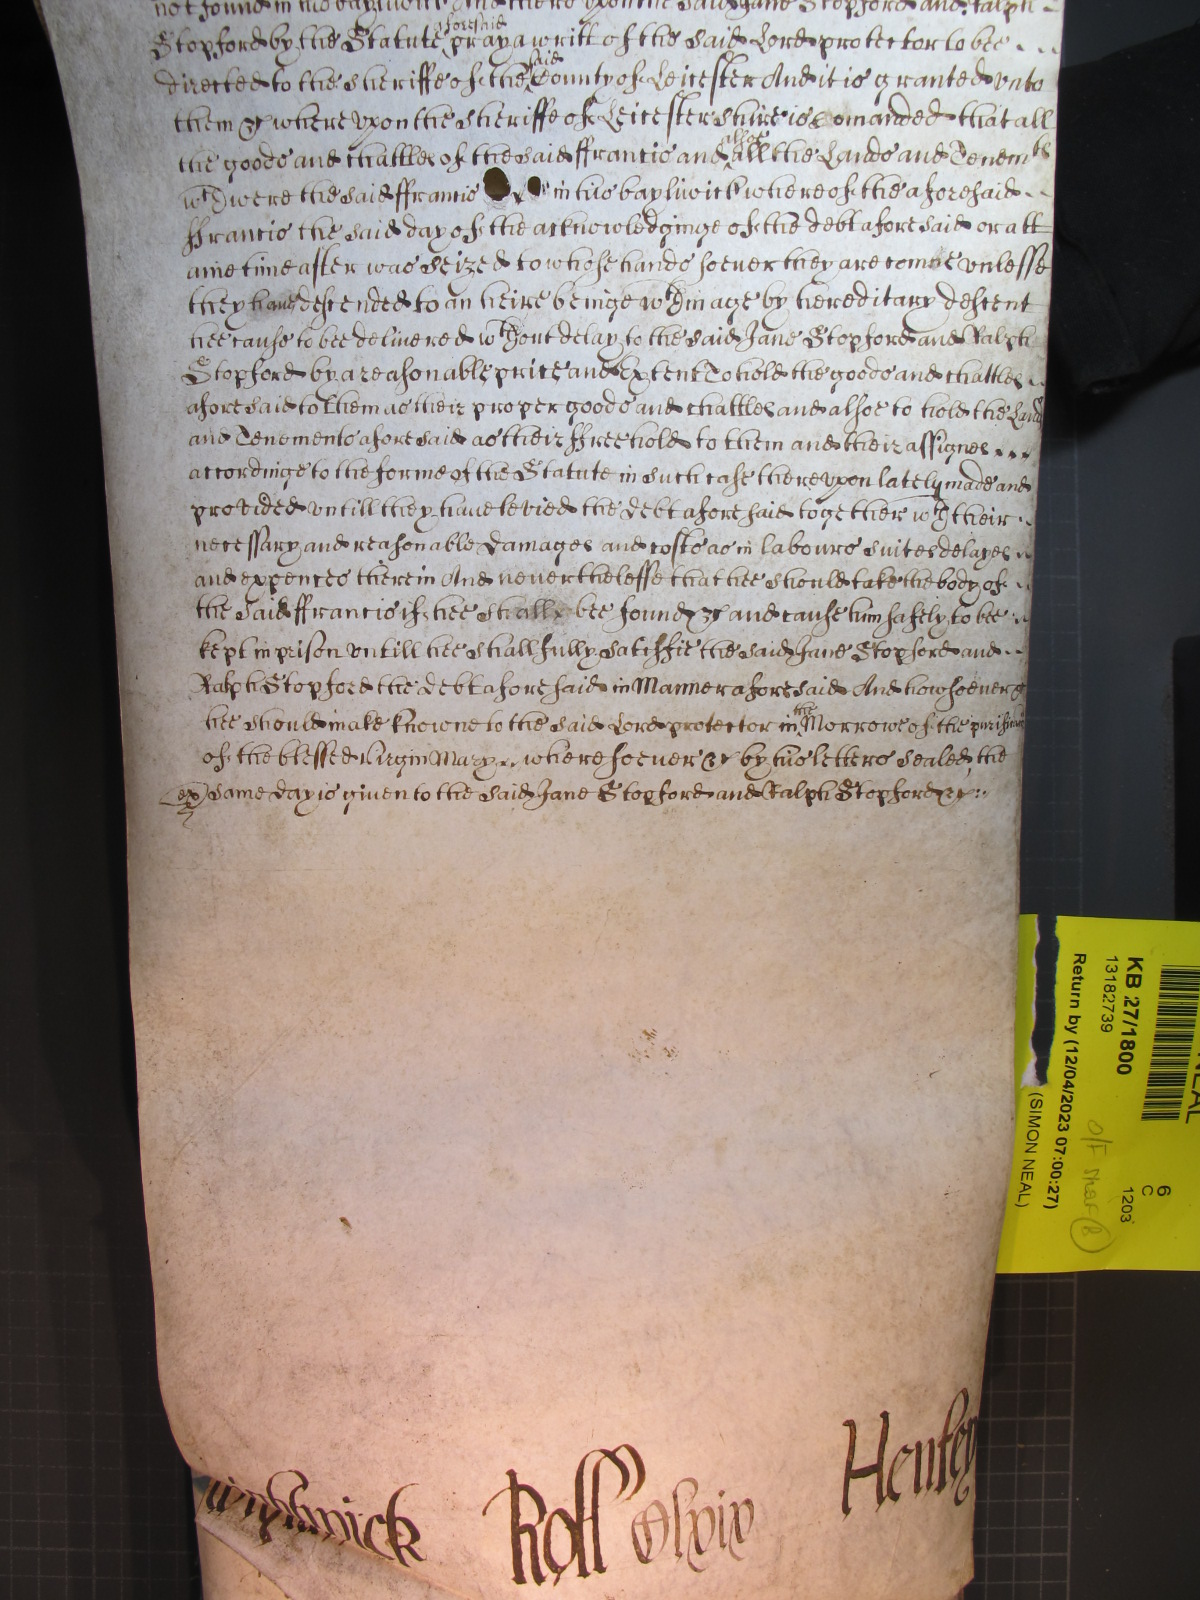 not found in his baylwick And thereupon the said Jane Stopford and Ralph
Stopford by the Statute aforesaid pray a writt of the said Lord protector to bee
directed to the Sheriffe of the said County of Leicester And it is granted unto
them &c whereupon the Sheriffe of Leicestershire is comanded that all
the goods and chattles of the said ffrancis and alsoe all the Lands and Tenemts
wch were the said ffrancis in his baylwick whereof the aforesaid
ffrancis the said day of the acknowledginge of the debt aforesaid or att
anie time after was Seized to whose hands soever they are come unlesse
they have descended to an heire beinge wthin age by hereditary descent
hee cause to bee delivered wthout delay to the said Jane Stopford and Ralph
Stopford by a reasonable price and Extent To hold the goods and chattles
aforesaid to them as their proper goods and chattles and alsoe to hold the Lands
and Tenements aforesaid as their ffreehold to them and their assignes
accordinge to the forme of the Statute in such case thereupon lately made and
provided untill they have levied the debt aforesaid together wth their
necessary and reasonable damages and costs as in labours suites delayes
and expences therein And neverthelesse that hee should take the body of
the said ffrancis if hee shall bee found &c and cause him safely to bee
kept in prison untill hee shall fully satisfie the said Jane Stopford and
Ralph Stopford the debt aforesaid in Manner aforesaid And howsoever &c
hee should make knowne to the said Lord protector in the Morrowe of the purificac
of the blessed Virgin Mary wheresoever &c by his letters sealed the
same day is given to the said Jane Stopford and Ralph Stopford &c
Wightwick Roll Clxix Henley
KB 27/1800
13182739
Return by (12/04/2023 07:00:27)
(SIMON NEAL)
6
C
1203
NEAL